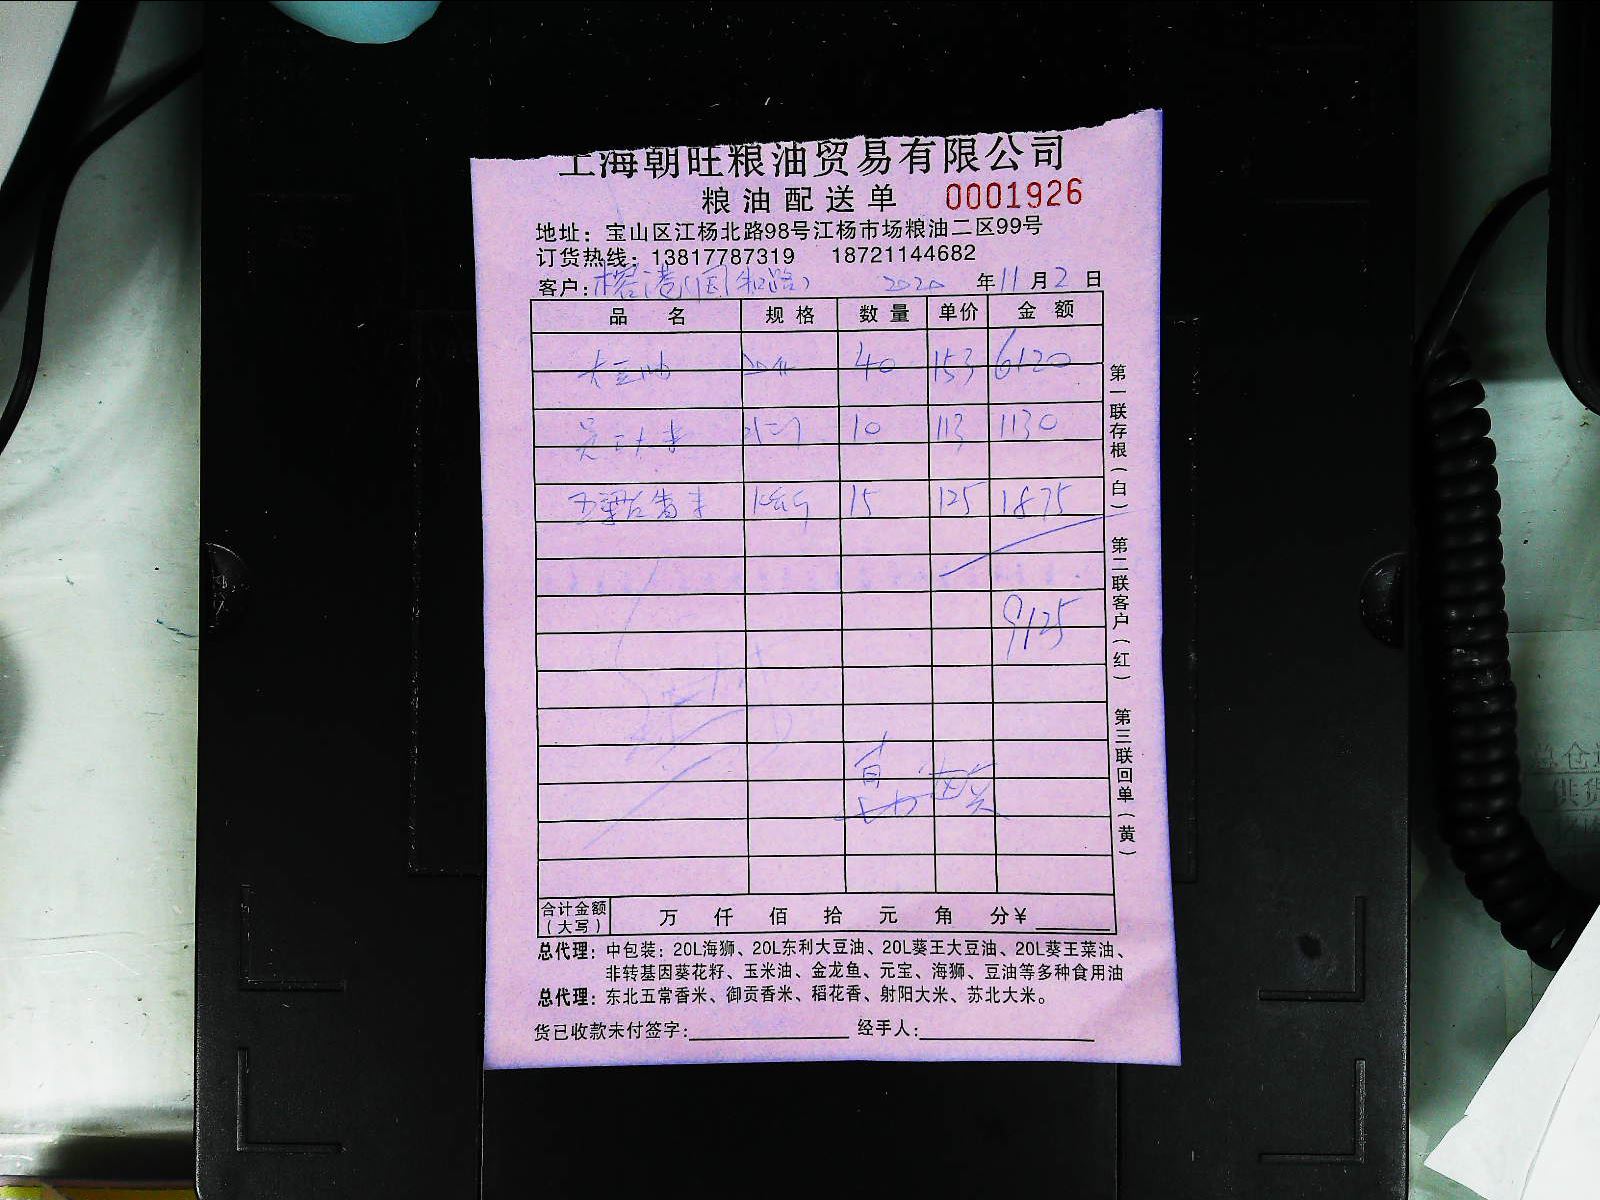 上海朝旺粮油贸易有限公司
粮油配送单 0001926
地址：宝山区江杨北路98号江杨市场粮油二区99号
订货热线：13817787319 18721144682
客户：榕港(国和路) 2020 年 11 月 2 日
品 名 规 格 数 量 单价 金 额
大豆油 40 153 6120
大米 10 113 1130
香米 15 125 1875
9125
合计金额（大写） 万 仟 佰 拾 元 角 分¥
总代理：中包装：20L海狮、20L东利大豆油、20L葵王大豆油、20L葵王菜油、
非转基因葵花籽、玉米油、金龙鱼、元宝、海狮、豆油等多种食用油
总代理：东北五常香米、御贡香米、稻花香、射阳大米、苏北大米。
货已收款未付签字： 经手人：
第一联存根（白）
第二联客户（红）
第三联回单（黄）